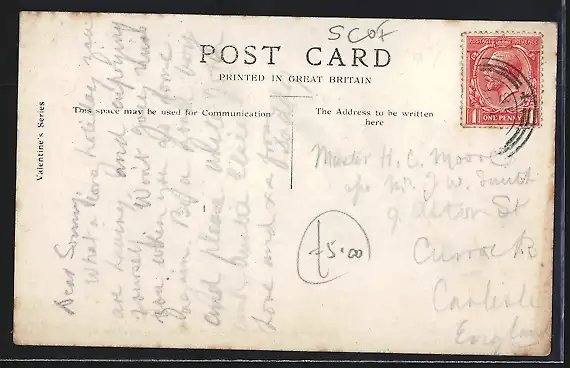 SCOT
POST CARD
PRINTED IN GREAT BRITAIN
This space may be used for Communication
The Address to be written
here
Valentine's Series
POSTAGE REVENUE
1 ONE PENNY 1
Dear Sonny,
What a long holiday you
are having and enjoying
yourself. Won't you
you when you come
again. Be a good boy
and please
Love and xx from
Master H. C. Moore
c/o Mr J. W. Smith
9 St
Currock Rd
Carlisle
England
£5.00